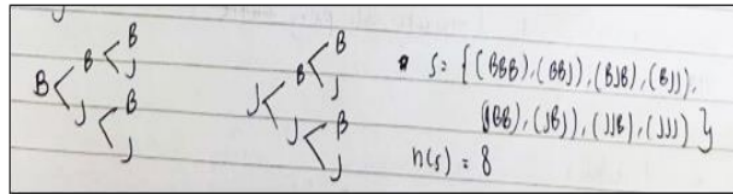 B B B J J B J
J B B J J B J
S = {(BBB), (BBJ), (BJB), (BJJ),
(JBB), (JBJ), (JJB), (JJJ)}
n(s) = 8